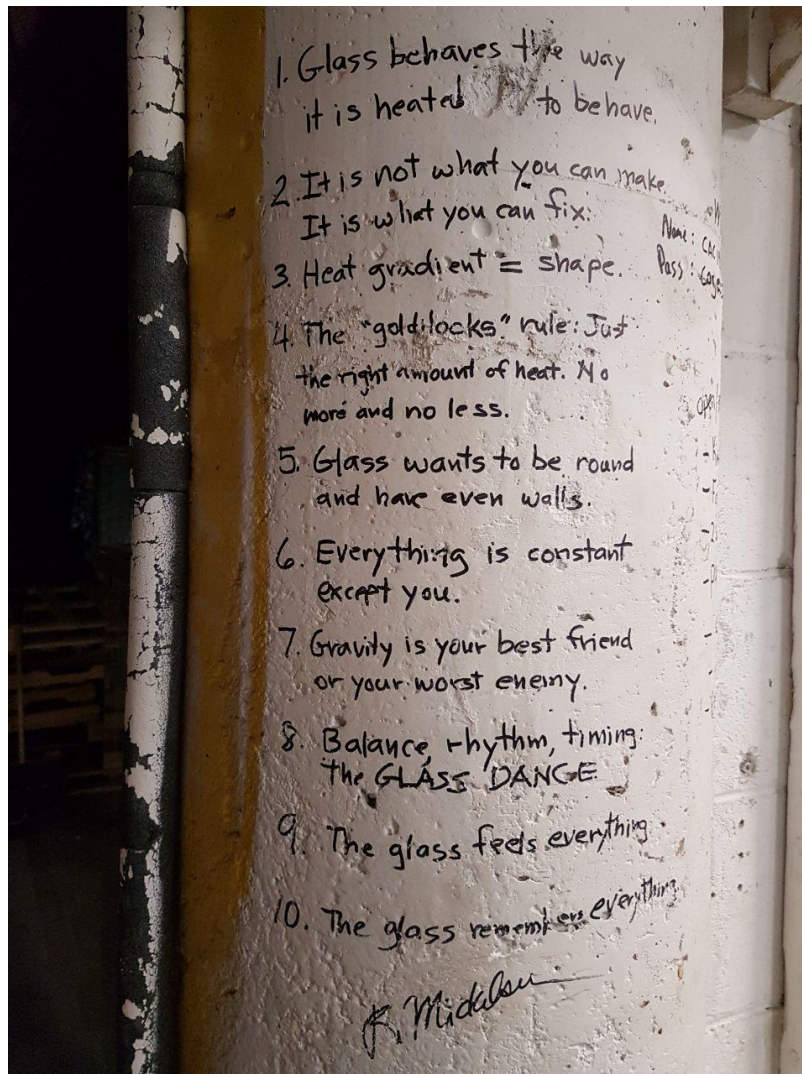 1. Glass behaves the way
it is heated to behave.
2. It is not what you can make
It is what you can fix.
3. Heat gradient = shape.
4. The "goldilocks" rule: Just
the right amount of heat. No
more and no less.
5. Glass wants to be round
and have even walls.
6. Everything is constant
except you.
7. Gravity is your best friend
or your worst enemy.
8. Balance, rhythm, timing:
the GLASS DANCE
9. The glass feels everything.
10. The glass remembers everything
Name:
Pass: